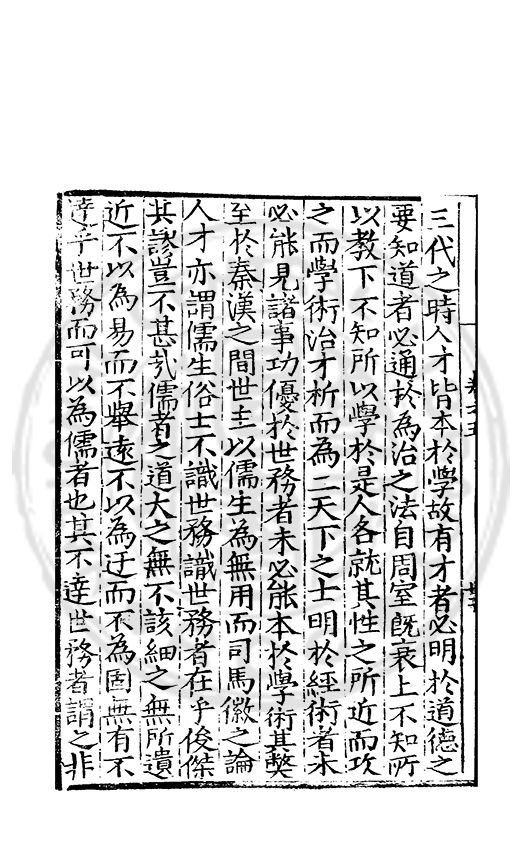 三代之時人才皆本於學故有才者必明於道德之
要知道者必通於為治之法自周室旣衰上不知所
以教下不知所以學於是人各就其性之所近而攻
之而學術治才析而為二天下之士明於經術者未
必能見諸事功優於世務者未必能本於學術其獘
至於秦漢之間世主以儒生為無用而司馬徽之論
人才亦謂儒生俗士不識世務識世務者在乎俊傑
其謬豈不甚㢤儒者之道大之無不該細之無所遺
近不以為易而不舉遠不以為迂而不為固無有不
達乎世務而可以為儒者也其不達世務者謂之非